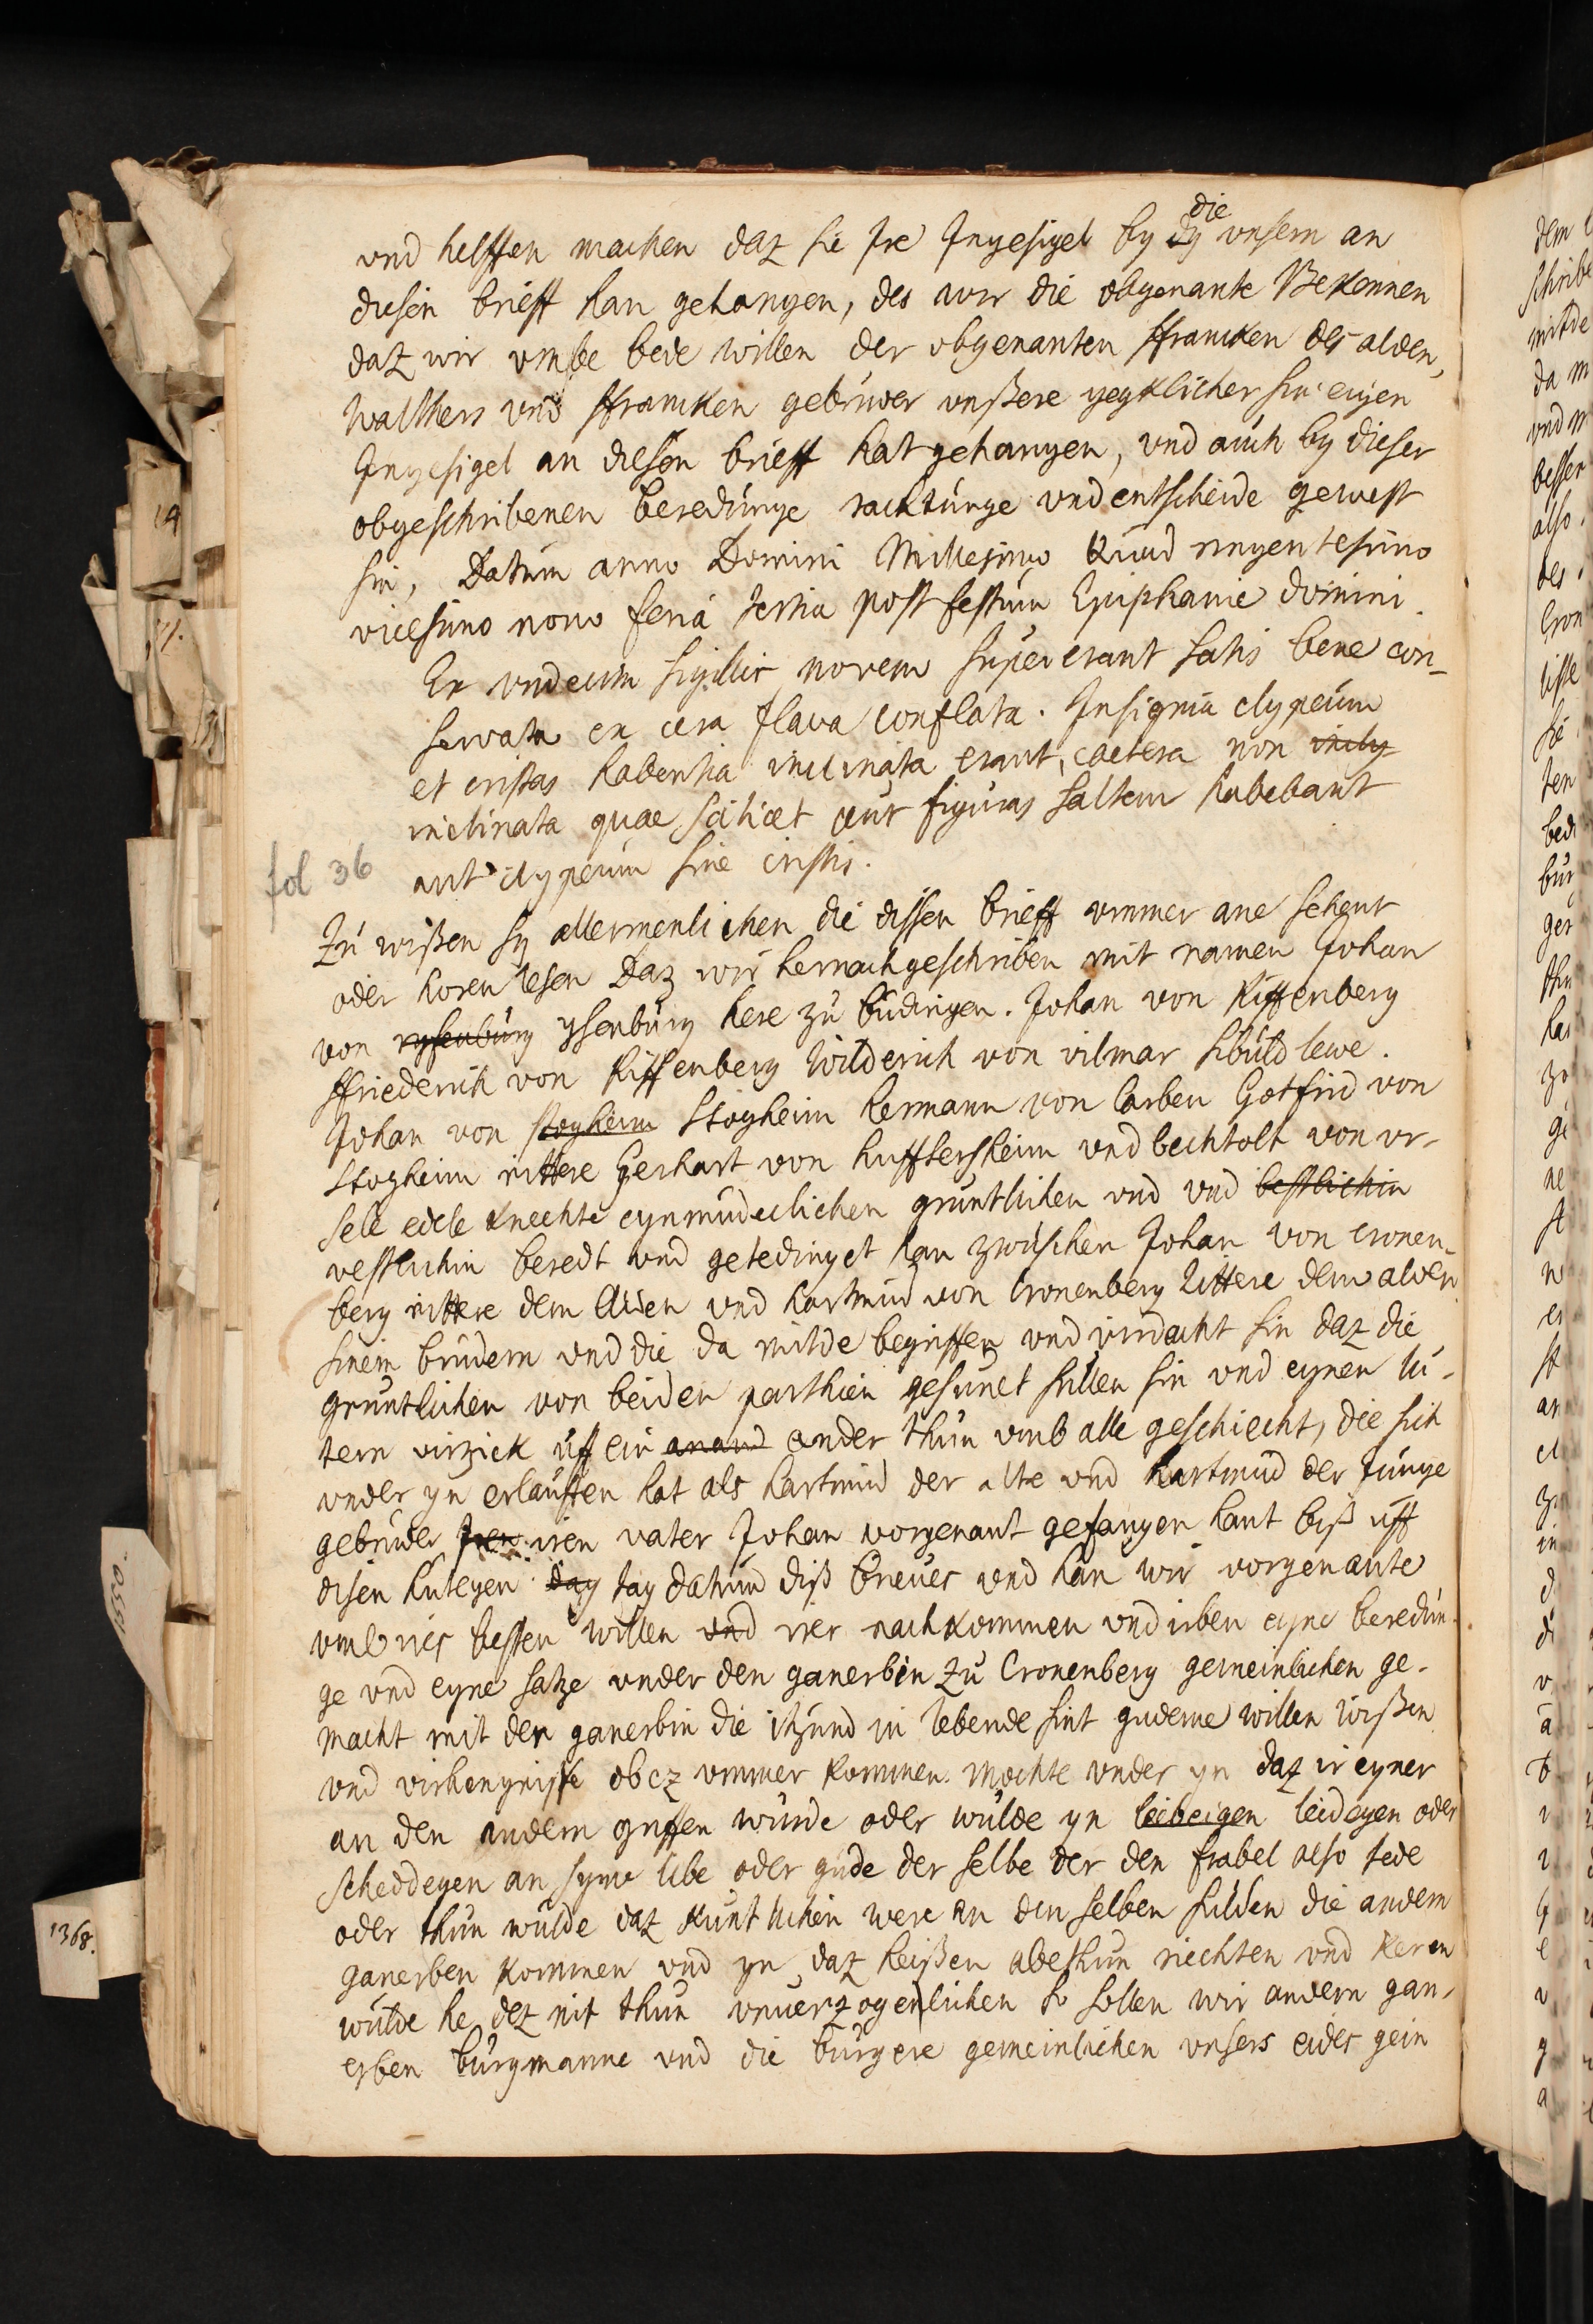 und helffen machen daz sie Ire Ingesigel by dy die unsern an
diesen brieff han gehangen, des wir die obgenante Bekennen
daz wir umbe bede willen der obgenanten ffrancken des alden,
Walthers und ffrancken gebruder unßere yegklicher sin eigen
Ingesigel an diesen brieff hat gehangen, und auch by dieser
obgeschribenen beredunge rachtunge und entscheide gewest
sin, Datum anno Domini Millesimo Quadringentesimo
vicesimo nono feria tertia post festum Epiphanie domini.
Ex undecim sigillis novem supererant satis bene con-
servata ex cera flava conflata. Insignia clypeum
et cristas habentia inclinata erant, caetera non incly
inclinata quae scilicet aut figuras saltem habebant
aut clypeum sine cristis.
fol 36
Zu wißen sy allermenlichen die dissen brieff ummer ane sehent
oder horen lesen Daz wir hernachgeschriben mit namen Johan
von rysenburg Ysenburg here zu budingen. Johan von Riffenberg
ffriederich von Riffenberg Wilderich von vilmar shuld lewe.
Johan von stogheim Stogheim Hermann von Carben Gotfrid von
Stogheim rittere Gerhart von hufftersheim und bechtolt von ur-
sele edele knechte eynmudeclichen gruntlichen und und bestlichin
vestlichin beredt und getedinget han zwischen Johan von Cronen-
berg rittere dem Alden und hartmud von Cronenberg Rittere dem alden
sinem brudern und die da mitde begriffen und virdacht sin daz die
gruntlichen von beiden parthien gesunet sullen sin und eynen lu-
tern virzick uff ein anand ander thun umb alle geschiecht, die sich
under yn erlauffen hat als hartmud der alte und hartmud der Junge
gebruder Iren iren vater Johan vorgenant gefangen hant biß uff
disen hutegen day tag datum diß brieves und han wir vorgenante
umb irs besten willen und irer nachkommen und irben eyne beredun-
ge und eyne satze under den ganerbin zu Cronenberg gemeinlichen ge-
macht mit den ganerbin die itzund in lebende sint gudeme willen wißen
und virhengnisse obez ummer kommen mochte under yn daz ir eyner
an den andern griffen wurde oder wulde yn leibeigen leidegen oder
scheddegen an syme libe oder gude der selbe der den frabel also tede
oder thun wulde daz kuntlichin were an den selben sulden die andern
ganerben kommen und yn daz heißen abethun riechten und keren
wulde he dez nit thun unverzogenlichen so sollen wir andern gan-
erben burgmanne und die burgere gemeinlichen unsers eides gein
1550.
1368.